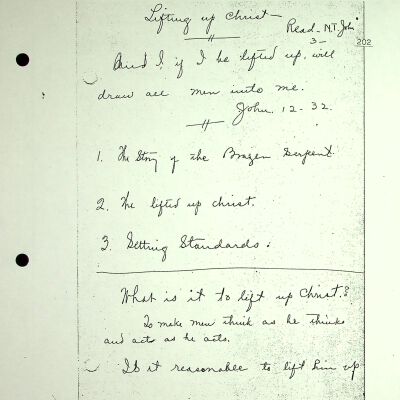 Lifting up Christ —
Read - N.T. John
3 —
202
And I, if I be lifted up, will
draw all men unto me.
John. 12 - 32.
1. The Story of the Brazen Serpent
2. The lifted up christ.
3. Setting Standards.
What is it to lift up Christ?
To make men think as he thinks
and acts as he acts.
Is it reasonable to lift him up